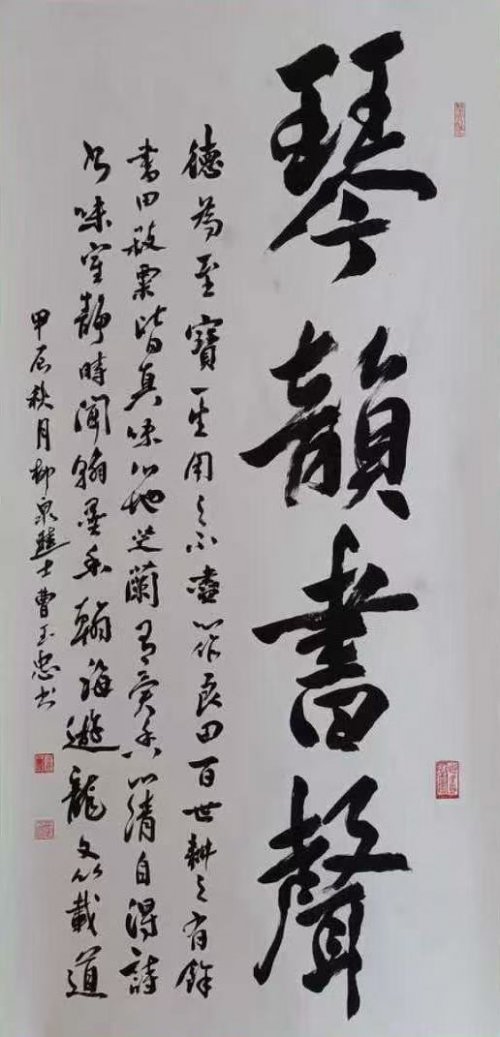 琴韻書聲
德為至寶一生用之不盡心作良田百世耕之有餘
書田菽粟皆真味心地芝蘭有異香心清自得詩
書味室靜時聞翰墨香翰海遊龍文以載道
甲辰秋月柳泉聽士曹玉忠书